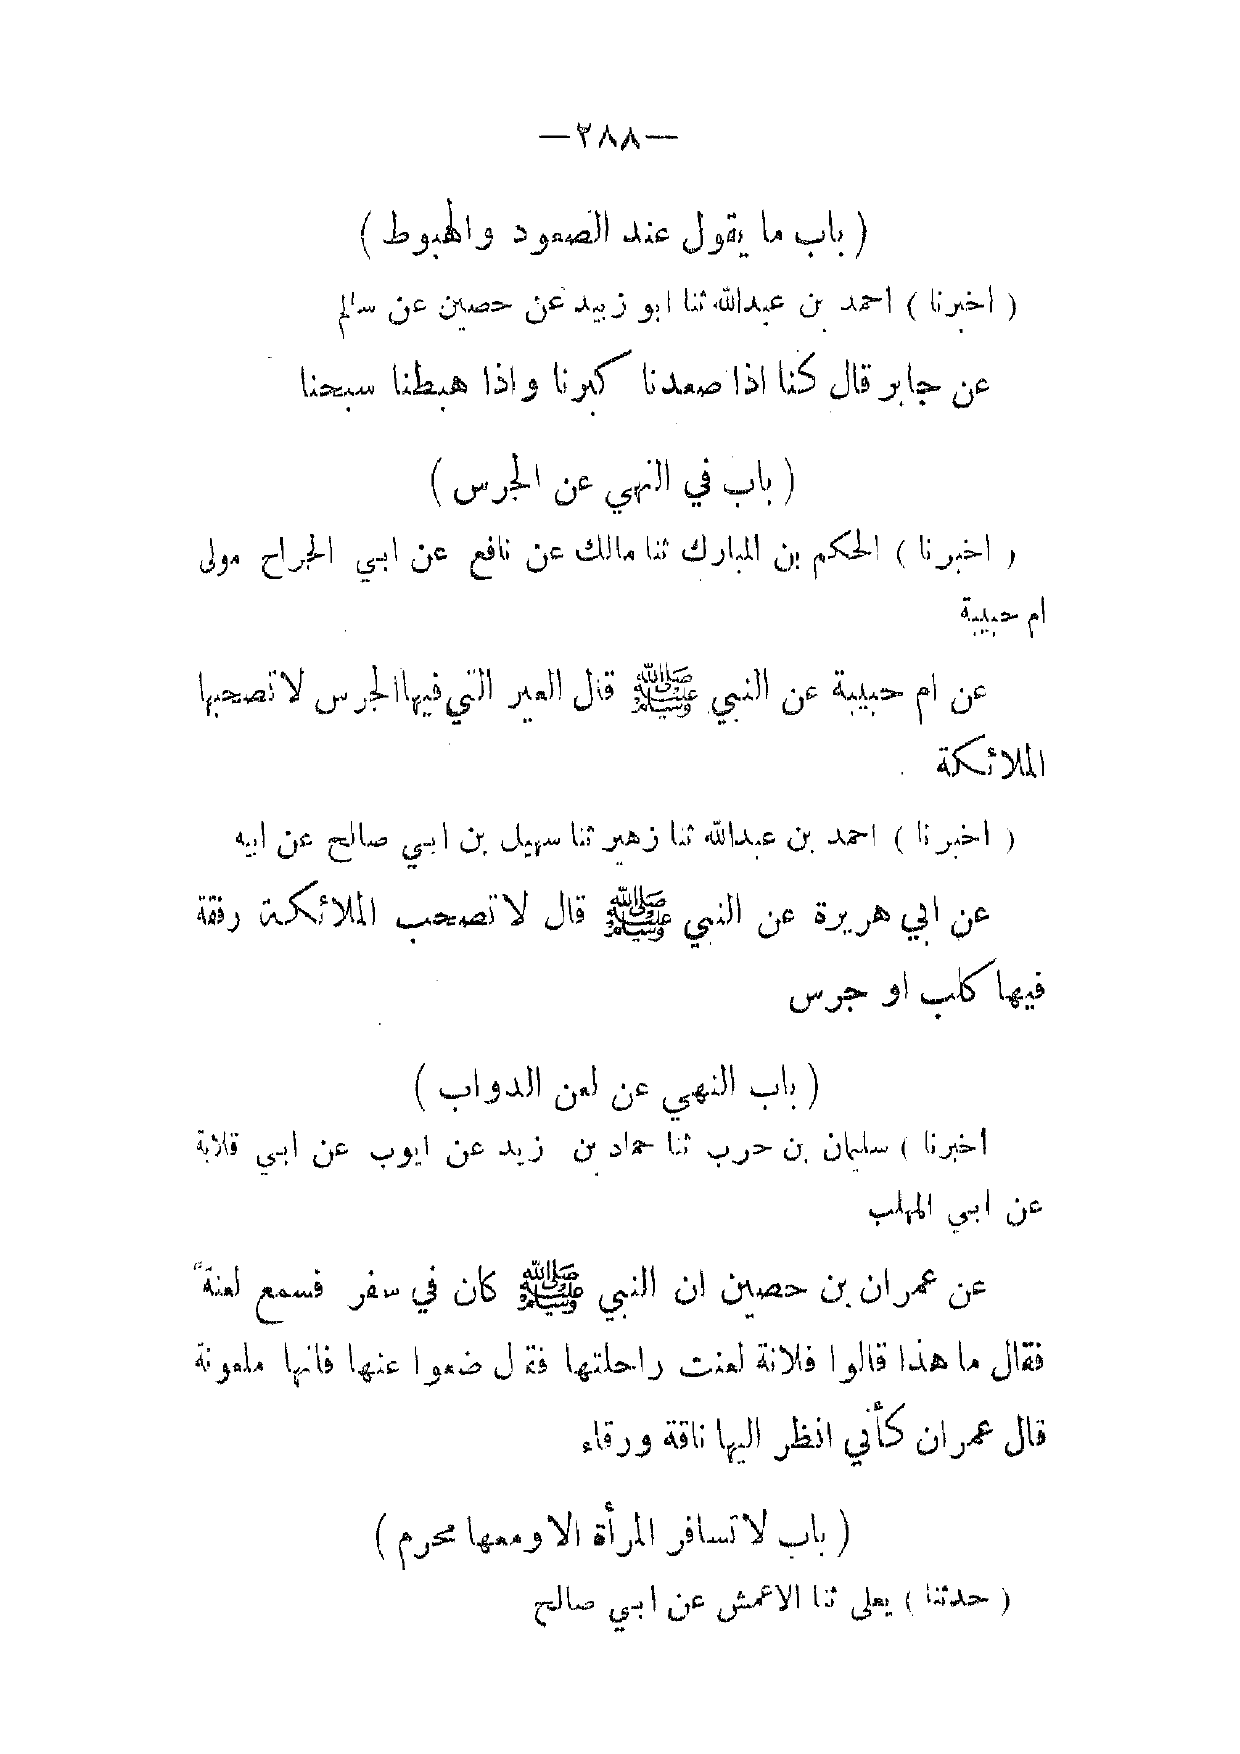 —٢٨٨—
( باب ما يقول عند الصعود والهبوط )
( اخبرنا ) احمد بن عبدالله ثنا ابو زبيد عن حصين عن سالم
عن جابر قال كنا اذا صعدنا كبرنا واذا هبطنا سبحنا
( باب في النهي عن الجرس )
( اخبرنا ) الحكم بن المبارك ثنا مالك عن نافع عن ابي الجراح مولى
ام حبيبة
عن ام حبيبة عن النبي ﷺ قال العير التي فيها الجرس لا تصحبها
الملائكة
( اخبرنا ) احمد بن عبدالله ثنا زهير ثنا سهيل بن ابي صالح عن ابيه
عن ابي هريرة عن النبي ﷺ قال لا تصحب الملائكة رفقة
فيها كلب او جرس
( باب النهي عن لعن الدواب )
اخبرنا ) سليمان بن حرب ثنا حماد بن زيد عن ايوب عن ابي قلابة
عن ابي المهلب
عن عمران بن حصين ان النبي ﷺ كان في سفر فسمع لعنةً
فقال ما هذا قالوا فلانة لعنت راحلتها فقال ضعوا عنها فانها ملعونة
قال عمران كأني انظر اليها ناقة ورقاء
( باب لا تسافر المرأة الا ومعها محرم )
( حدثنا ) يعلى ثنا الاعمش عن ابي صالح